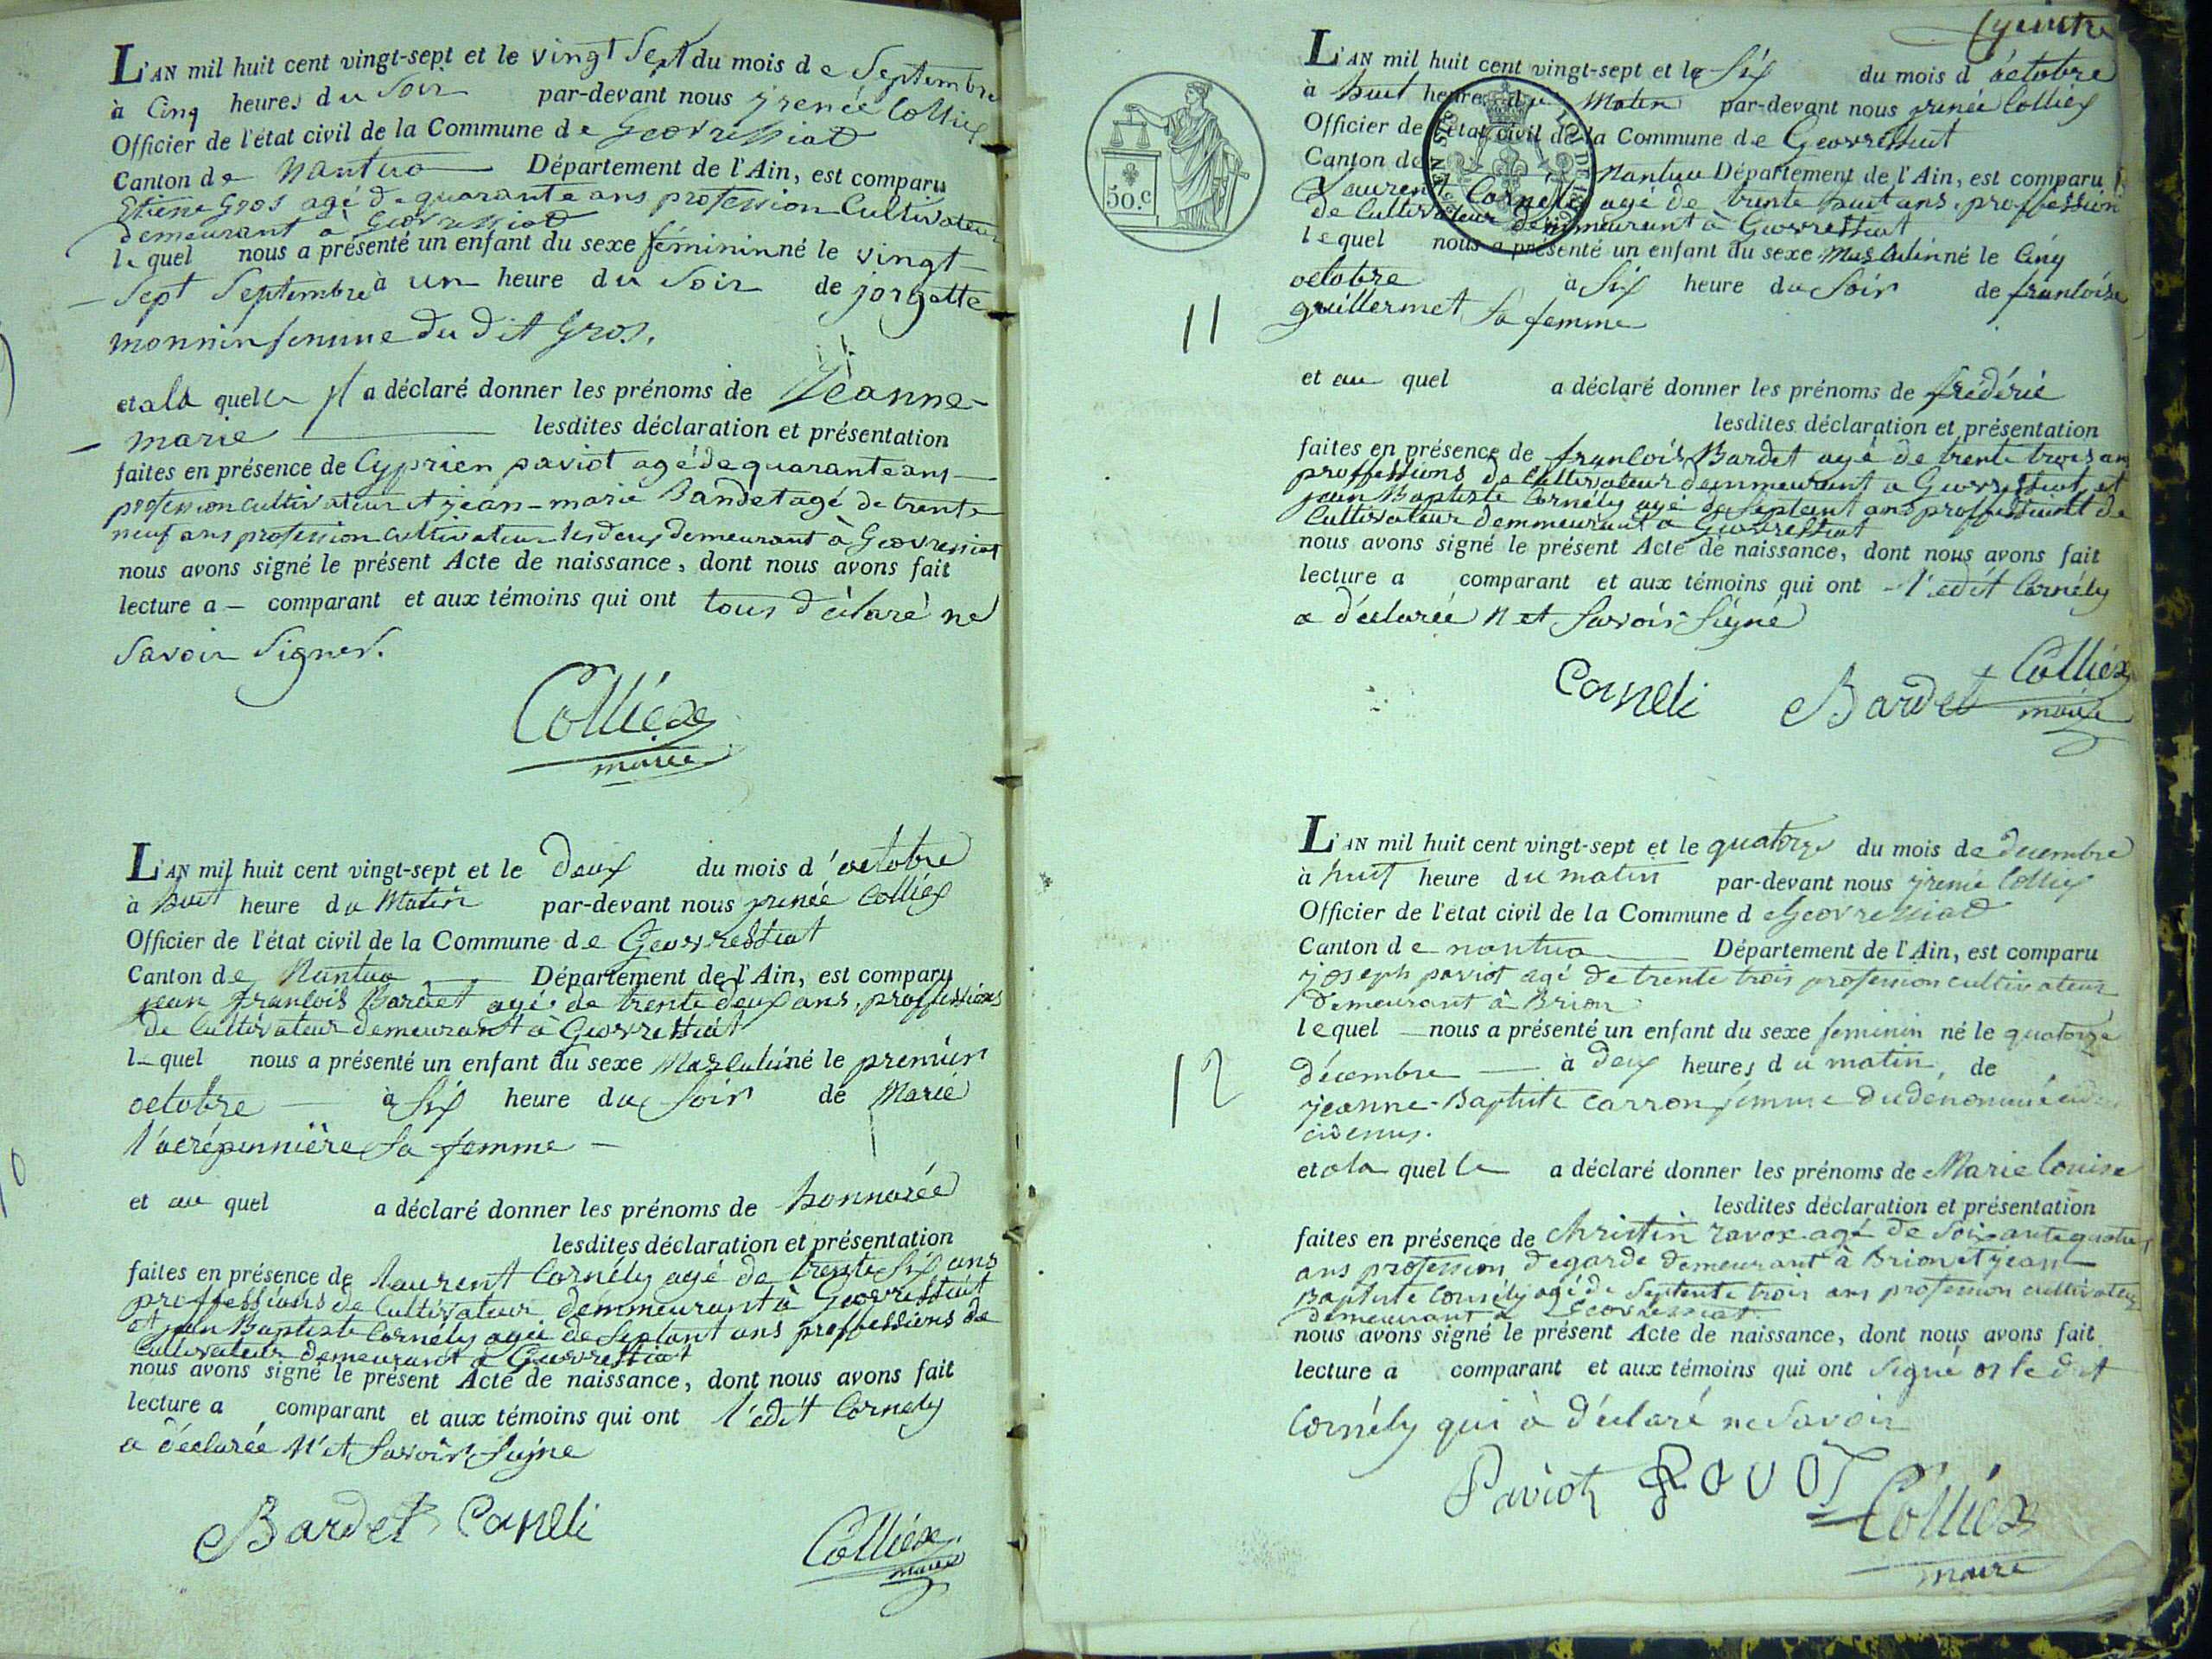 L'AN mil huit cent vingt-sept et le vingt Sept du mois de Septembre
à Cinq heures du Soir par-devant nous jrenée Colliex
Officier de l'état civil de la Commune de Geovressiat
Canton de Nantua Département de l'Ain, est comparu
Etiene Gros agé de quarante ans profession Cultivateur
demeurant à Geovressiat
lequel nous a présenté un enfant du sexe féminin né le vingt
Sept Septembre à un heure du Soir de jorgette
monnin femme du dit Gros.
et a la quelle jl a déclaré donner les prénoms de Jeanne-
marie lesdites déclaration et présentation
faites en présence de Cyprien paviot agé de quarante ans
profession cultivateur et jean-marie Bandet agé de trente
neuf ans profession cultivateur les deux demeurant à Geovressiat
nous avons signé le présent Acte de naissance, dont nous avons fait
lecture a comparant et aux témoins qui ont tous déclaré ne
Savoir Signer.
Colliex
maire
L'AN mil huit cent vingt-sept et le deux du mois d'octobre
à huit heure du Matin par-devant nous jrenée Colliex
Officier de l'état civil de la Commune de Geovressiat
Canton de Nantua Département de l'Ain, est comparu
jean françois Bardet agée de trente deux ans, proffessions
de Cultivateur demeurant à Geovressiat
lequel nous a présenté un enfant du sexe Masculin né le premier
octobre à Six heure du Soir de Marie
sa femme
et au quel a déclaré donner les prénoms de honnorée
lesdites déclaration et présentation
faites en présence de laurent Cornély agé de trente Six ans
proffessions de Cultivateur demmeurant à Geovressiat
et jean Baptiste Cornély agée de Septant ans proffessions de
Cultivateur demeurant à Geovressiat
nous avons signé le présent Acte de naissance, dont nous avons fait
lecture a comparant et aux témoins qui ont l'edit Cornely
a déclarée n'et Savoir Signe
Bardet Corneli
Colliex
maire
L'AN mil huit cent vingt-sept et le Six du mois d octobre
à huit heure du Matin par-devant nous jrenée Colliex
Officier de l'état civil de la Commune de Geovressiat
Canton de Nantua Département de l'Ain, est comparu
Laurent Cornély agé de trente huit ans, proffession
de Cultivateur demmeurant à Geovressiat
lequel nous a présenté un enfant du sexe Masculin né le Cinq
octobre à Six heure du Soir de françoise
guillermet Sa femme
50.c
11
et au quel a déclaré donner les prénoms de frédéric
lesdites déclaration et présentation
faites en présence de françois Bardet agé de trente trois ans
proffessions de Cultivateur demmeurant a Geovressiat et
jean Baptiste Cornély agé de Septant ans proffessions de
Cultivateur demmeurant a Geovressiat
nous avons signé le présent Acte de naissance, dont nous avons fait
lecture a comparant et aux témoins qui ont l'edit Cornély
a déclarée n et Savoir Signé
Corneli Bardet Colliex
maire
L'AN mil huit cent vingt-sept et le quatorze du mois de decembre
à huit heure du matin par-devant nous jrenée Colliex
Officier de l'état civil de la Commune de Geovressiat
Canton de nantua Département de l'Ain, est comparu
joseph paviot agé de trente trois profession cultivateur
demeurant à Brion
lequel nous a présenté un enfant du sexe feminin né le quatorze
décembre à deux heures du matin, de
jeanne-Baptiste Carron femme du dénommé
12
et a la quelle a déclaré donner les prénoms de Marie louise
lesdites déclaration et présentation
faites en présence de Christin ravox agé de Soixante quatre
ans profession de garde demeurant à Brion et jean
Baptiste Cornély agé de Septente trois ans profession cultivateur
demeurant à Geovressiat.
nous avons signé le présent Acte de naissance, dont nous avons fait
lecture a comparant et aux témoins qui ont signé le dit
Cornély qui à déclaré ne Savoir
Paviot Colliex
maire